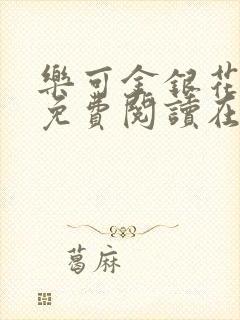 樂可金銀花
免費閱讀在
葛麻